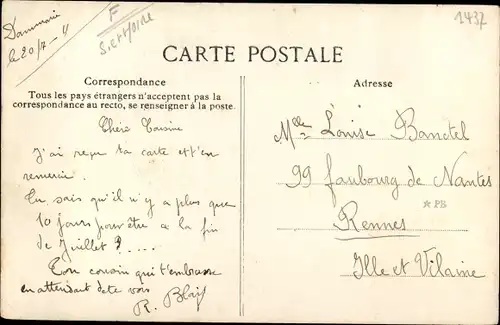 Dammarie
le 20/7 - 11
F
S. et Marne
1437
CARTE POSTALE
Correspondance
Tous les pays étrangers n'acceptent pas la
correspondance au recto, se renseigner à la poste.
Adresse
Chère Cousine
J'ai reçu ta carte et t'en
remercie.
Tu sais qu'il n'y a plus que
10 jours pour être a la fin
de Juillet ? .....
Ton cousin qui t'embrasse
en attendant de te voir
R.
Melle Louise Banctel
99 faubourg de Nantes
* PB
Rennes
Ille et Vilaine